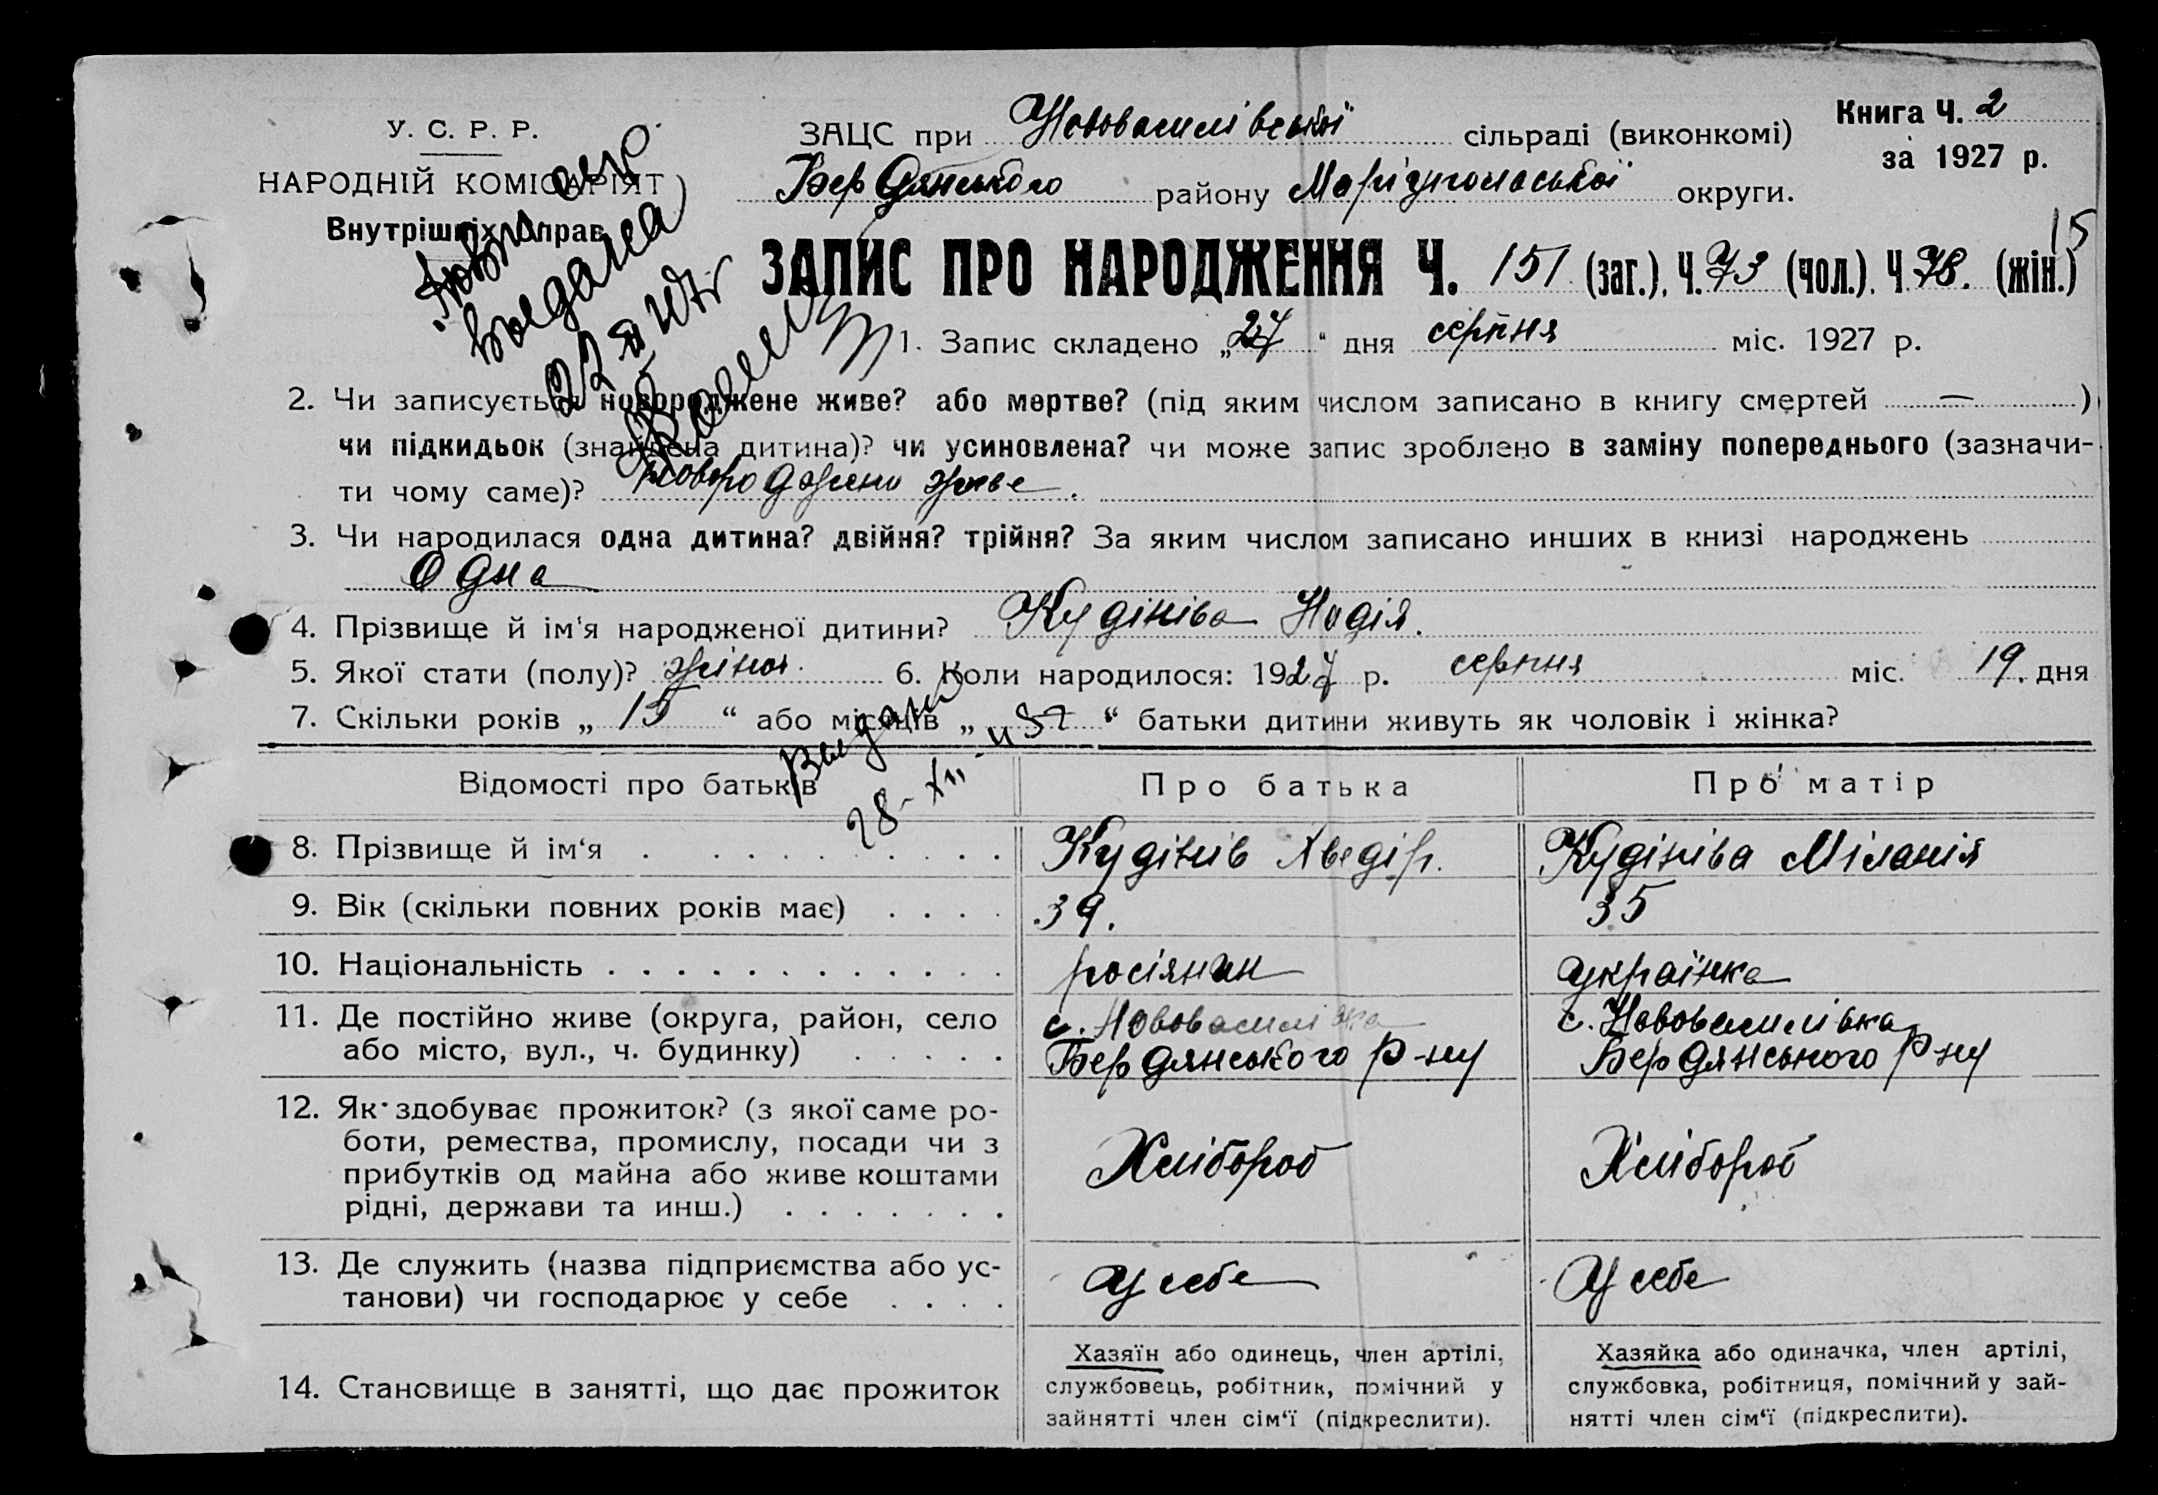 У. С. Р. Р.
НАРОДНІЙ КОМІСАРІЯТ
Внутрішніх Справ
ЗАЦС при Нововасилівської сільраді (виконкомі)
Бердянського району Маріупольської округи.
Книга Ч. 2
за 1927 р.
15
ЗАПИС ПРО НАРОДЖЕННЯ Ч. 151 (заг.), Ч. 73 (чол.), Ч. 78. (жін.)
выдана
22
1. Запис складено „27“ дня серпня міс. 1927 р.
2. Чи записується новороджене живе? або мертве? (під яким числом записано в книгу смертей — )
чи підкидьок (знайдена дитина)? чи усиновлена? чи може запис зроблено в заміну попереднього (зазначи-
ти чому саме)? живе.
3. Чи народилася одна дитина? двійня? трійня? За яким числом записано инших в книзі народжень
Одна
4. Прізвище й ім'я народженої дитини? Кудініва Надія.
5. Якої стати (полу)? жіноч. 6. Коли народилося: 1927 р. серпня міс. 19. дня
7. Скільки років „ 15 “ або місяців „ “ батьки дитини живуть як чоловік і жінка?
28-XII-37
Відомості про батьків
Про батька
Про матір
8. Прізвище й ім‘я . . . . . . . . . .
Кудінів Хведір.
Кудініва Міланія
9. Вік (скільки повних років має) . . . .
39.
35
10. Національність . . . . . . . . . . . .
росіянин
українка
11. Де постійно живе (округа, район, село
або місто, вул., ч. будинку) . . . . .
с. Нововасилівка
Бердянського р-ну
с. Нововасилівка
Бердянського р-ну
12. Як здобуває прожиток? (з якої саме ро-
боти, ремества, промислу, посади чи з
прибутків од майна або живе коштами
рідні, держави та инш.) . . . . . . .
Хлібороб
Хлібороб
13. Де служить (назва підприємства або ус-
танови) чи господарює у себе . . . .
У себе
У себе
14. Становище в занятті, що дає прожиток
Хазяїн або одинець, член артілі,
службовець, робітник, помічний у
зайнятті член сім‘ї (підкреслити).
Хазяйка або одиначка, член артілі,
службовка, робітниця, помічний у зай-
нятті член сім‘ї (підкреслити).